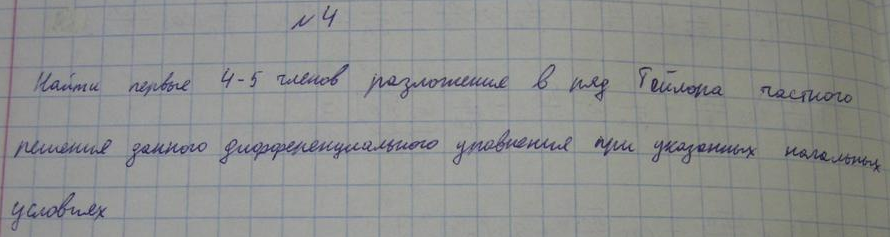 №4
Найти первые 4-5 членов разложения в ряд Тейлора частного
решения данного дифференциального уравнения при указанных начальных
условиях